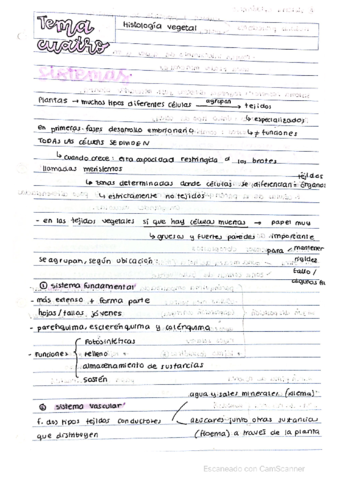 Tema
cuatro
histología vegetal
sistemas
Plantas → muchos tipos diferentes células agrupan → tejidos
↳ especializados
en primeras fases desarrollo embrionario ↳ p funciones
TODAS LAS CÉLULAS SE DIVIDEN
↳ cuando crece: esta capacidad restringida a los brotes
llamadas meristemos
↳ zonas determinadas donde células se diferencian: tejidos órganos
↳ estrictamente no tejidos
- en los tejidos vegetales sí que hay células muertas → papel muy
↳ gruesas y fuertes paredes importante
para mantener
rigidez
tallo /
se agrupan, según ubicación:
① sistema fundamental
- más extenso + forma parte
hojas / tallos jóvenes
- parénquima, esclerénquima y colénquima
fotosintéticas
- Funciones relleno
almacenamiento de sustancias
sostén
② sistema vascular
agua y sales minerales (xilema)
f. dos tipos tejidos conductores
azúcares junto otras sustancias
que distribuyen
(floema) a través de la planta
Escaneado con CamScanner